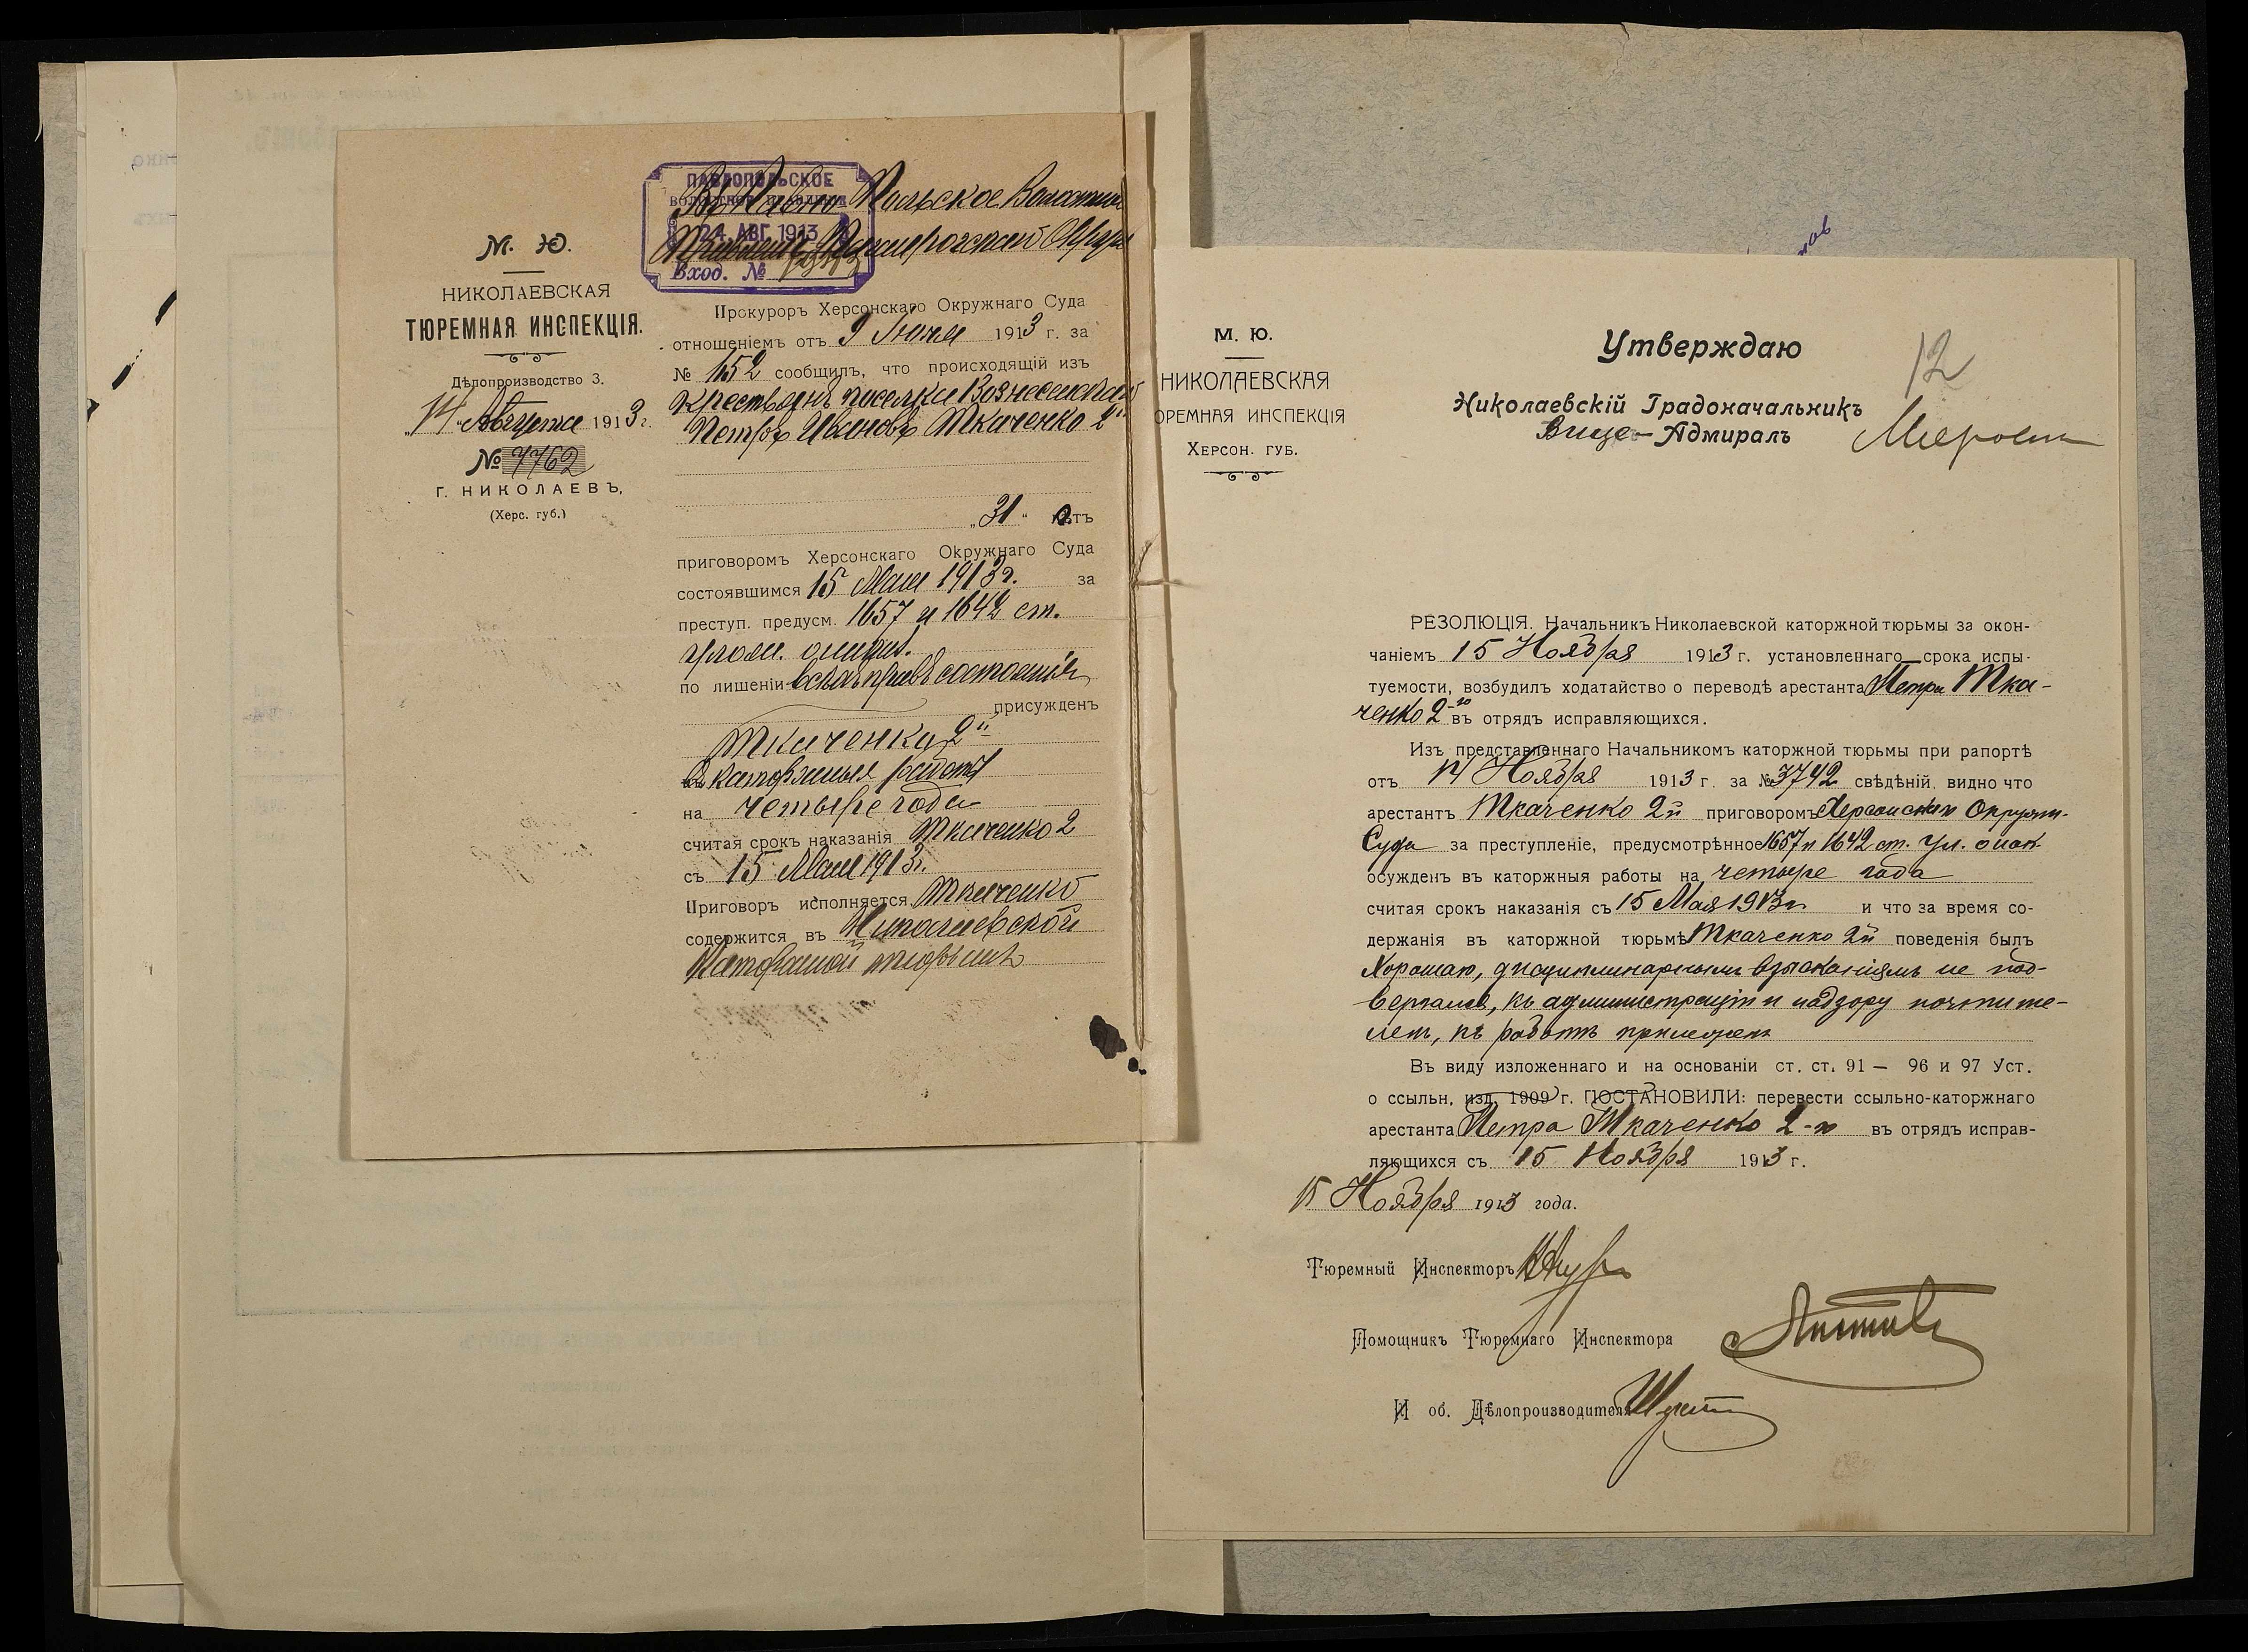 М. Ю.
НИКОЛАЕВСКАЯ
ТЮРЕМНАЯ ИНСПЕКЦІЯ.
Дѣлопроизводство 3.
„14" Августа 1913 г.
№ 7762
Г. НИКОЛАЕВЪ,
(Херс. губ.)
ПАВЛОПОЛЬСКОЕ
ВОЛОСТНОЕ ПРАВЛЕНІЕ
24 АВГ. 1913
Вход. №
Въ Павло Польское Волостное
Правленіе
Прокуроръ Херсонскаго Окружнаго Суда
отношеніемъ отъ 9 1913 г. за
№ 1652 сообщилъ, что происходящій изъ
крестьянъ поселка Вознесенскаго
Петръ Ивановъ Ткаченко 2й
„31" лѣтъ
приговоромъ Херсонскаго Окружнаго Суда
состоявшимся 15 Мая 1913 г. за
преступ. предусм. 1657 и 1642 ст.
улож. о наказ.
по лишеніи всѣхъ правъ состоянія
присужденъ
Ткаченко 2й
въ каторжныя работы
на четыре года
считая срокъ наказанія Ткаченко 2
съ 15 Мая 1913 г.
Приговоръ исполняется Ткаченко
содержится въ Николаевской
Каторжной тюрьмѣ
М. Ю.
НИКОЛАЕВСКАЯ
ЮРЕМНАЯ ИНСПЕКЦІЯ
ХЕРСОН. ГУБ.
Утверждаю
12
Николаевскій Градоначальникъ
Вице-Адмиралъ
РЕЗОЛЮЦІЯ. Начальникъ Николаевской каторжной тюрьмы за окон-
чаніемъ 15 Ноября 1913 г. установленнаго срока испы-
туемости, возбудилъ ходатайство о переводѣ арестанта Петра Тка-
ченко 2-го въ отрядъ исправляющихся.
Изъ представленнаго Начальникомъ каторжной тюрьмы при рапортѣ
отъ 14 Ноября 1913 г. за № 3742 свѣдѣній, видно что
арестантъ Ткаченко 2й приговоромъ Херсонскаго Окружн.
Суда за преступленіе, предусмотрѣнное 1657 и 1642 ст. Ул. о нак.
осужденъ въ каторжныя работы на четыре года
считая срокъ наказанія съ 15 Мая 1913 г. и что за время со-
держанія въ каторжной тюрьмѣ Ткаченко 2й поведенія былъ
хорошаго, дисциплинарнымъ взысканіямъ не под-
вергался, къ администраціи и надзору почтите-
ленъ, къ работѣ прилеженъ
Въ виду изложеннаго и на основаніи ст. ст. 91 — 96 и 97 Уст.
о ссыльн. изд. 1909 г. ПОСТАНОВИЛИ: перевести ссыльно-каторжнаго
арестанта Петра Ткаченко 2-го въ отрядъ исправ-
ляющихся съ 15 Ноября 1913 г.
15 Ноября 1913 года.
Тюремный Инспекторъ
Помощникъ Тюремнаго Инспектора
И об. Дѣлопроизводителя